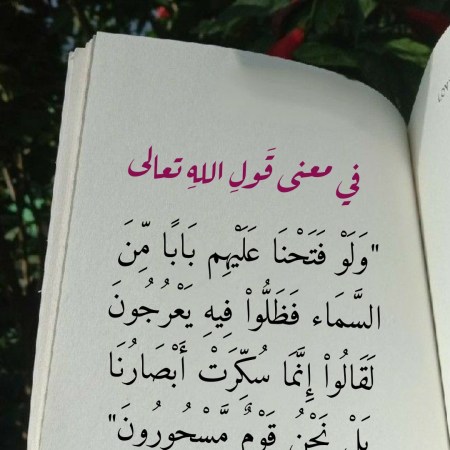 في معنى قَولِ اللهِ تعالى
"وَلَوْ فَتَحْنَا عَلَيْهِم بَابًا مِّنَ
السَّمَاء فَظَلُّواْ فِيهِ يَعْرُجُونَ
لَقَالُواْ إِنَّمَا سُكِّرَتْ أَبْصَارُنَا
بَلْ نَحْنُ قَوْمٌ مَّسْحُورُونَ"